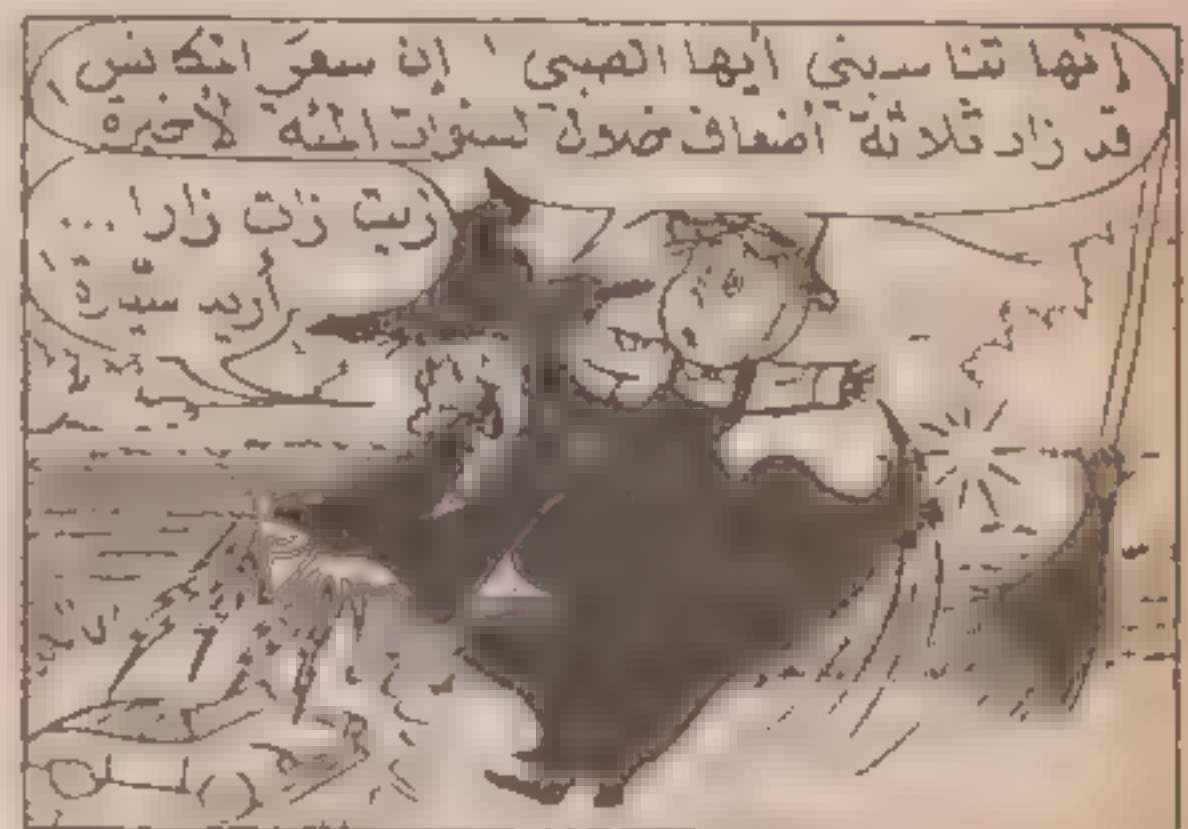 إنها تناسبني أيها الصبي ! إن سعر المكانس
قد زاد ثلاثة أضعاف خلال السنوات المئة الأخيرة
زيت زات زارا ...
أريد سيّارة !